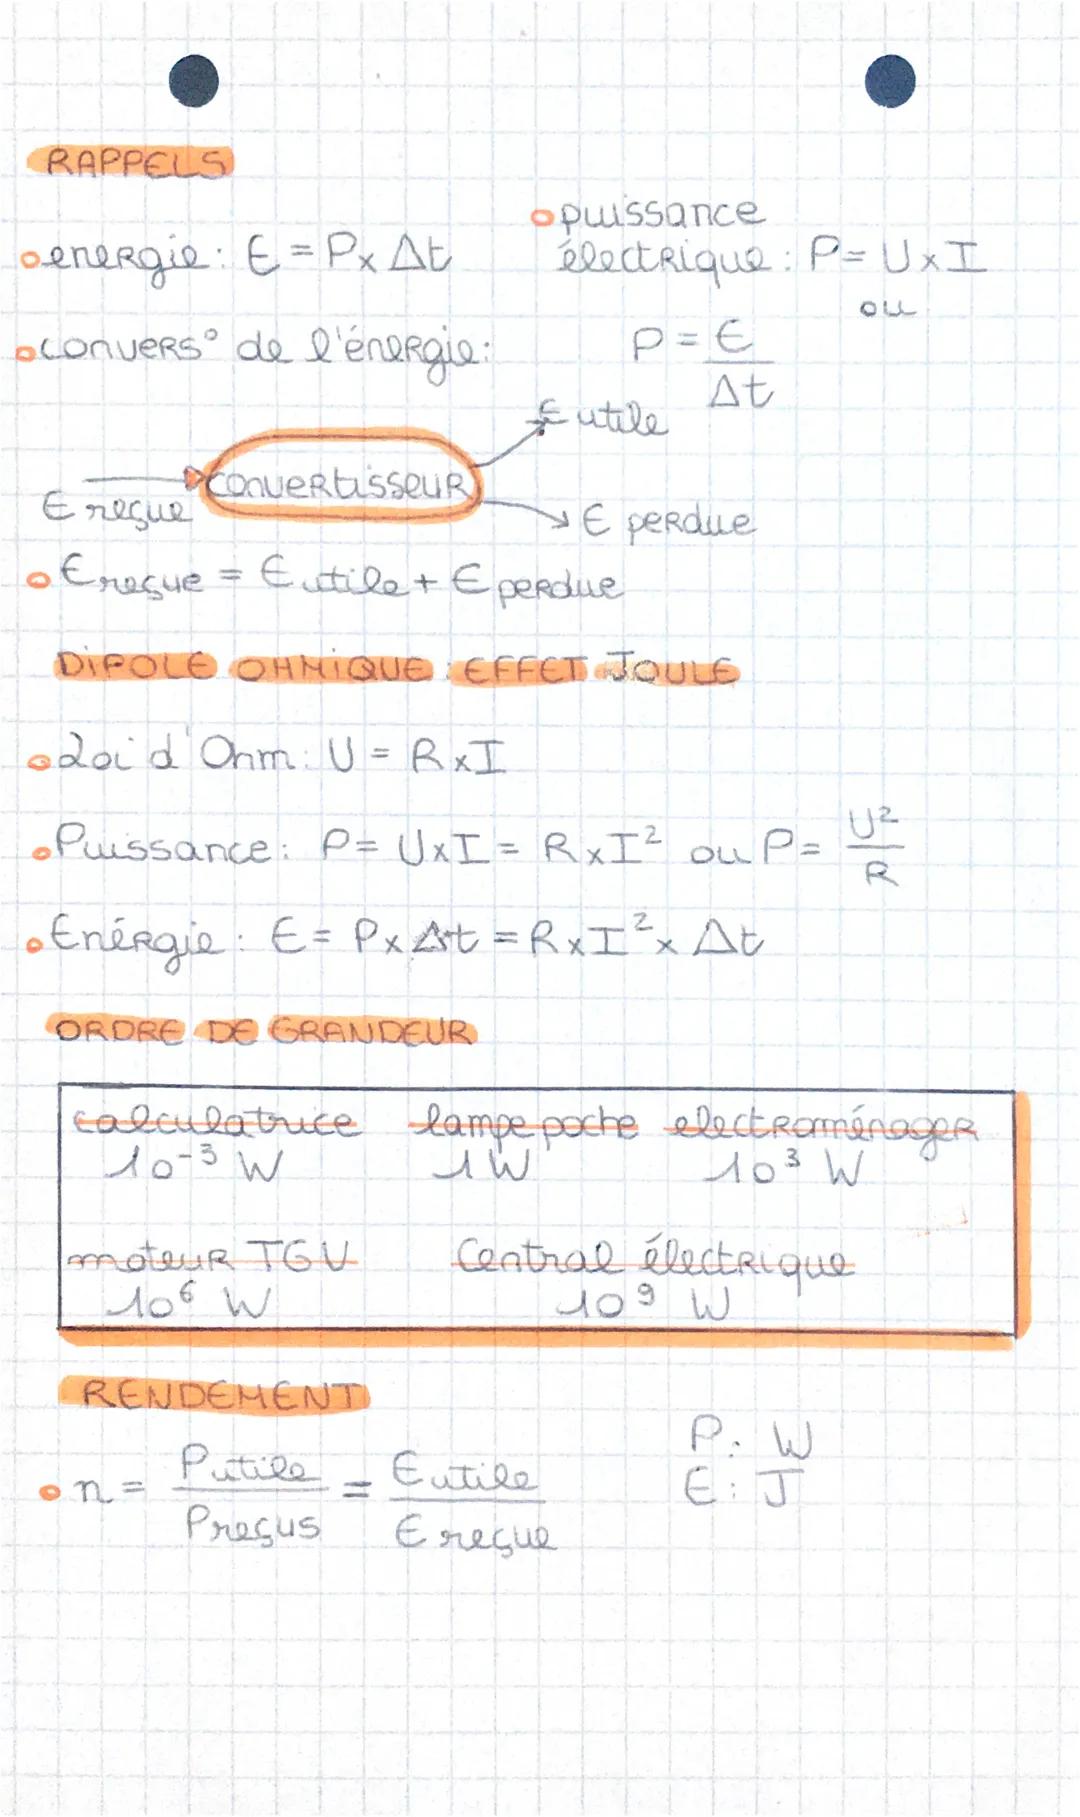 RAPPELS
energie : E = P x Δt
puissance
électrique : P = U x I
ou
P = E / Δt
convers° de l'énergie :
E utile
convertisseur
E reçue
E perdue
E reçue = E utile + E perdue
DIPOLE OHMIQUE : EFFET JOULE
Loi d'Ohm : U = R x I
Puissance : P = U x I = R x I² ou P = U² / R
Enérgie : E = P x Δt = R x I² x Δt
ORDRE DE GRANDEUR
calculatrice lampe poche electroménager
10⁻³ W 1 W 10³ W
moteur TGV Central électrique
10⁶ W 10⁹ W
RENDEMENT
n = Putile / Preçus = Eutile / E reçue
P : W
E : J